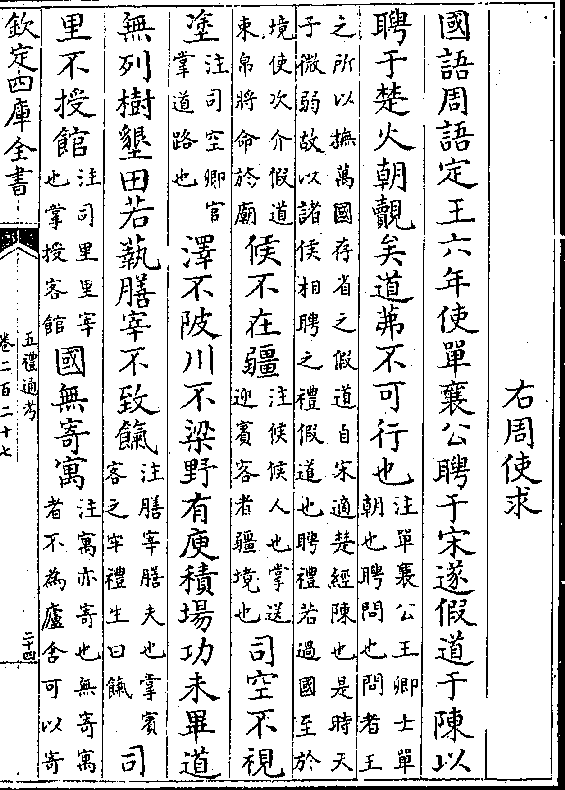 右周使求
國語周語定王六年使單襄公聘于宋遂假道于陳以
聘于楚火朝覿矣道茀不可行也
注單襄公王卿士單
朝也聘問也問者王
之所以撫萬國存省之假道自宋適楚經陳也是時天
子微弱故以諸侯相聘之禮假道也聘禮若過國至於
境使次介假道
束帛將命於廟
候不在疆
注候候人也掌送
迎賓客者疆境也
司空不視
塗
注司空卿官
掌道路也
澤不陂川不梁野有庾積場功未畢道
無列樹墾田若蓺膳宰不致餼
注膳宰膳夫也掌賓
客之牢禮生曰餼
司
里不授館
注司里里宰
也掌授客館
國無寄寓
注寓亦寄也無寄寓
者不為廬舍可以寄
欽定四庫全書
五禮通考
卷二百二十七
二十四